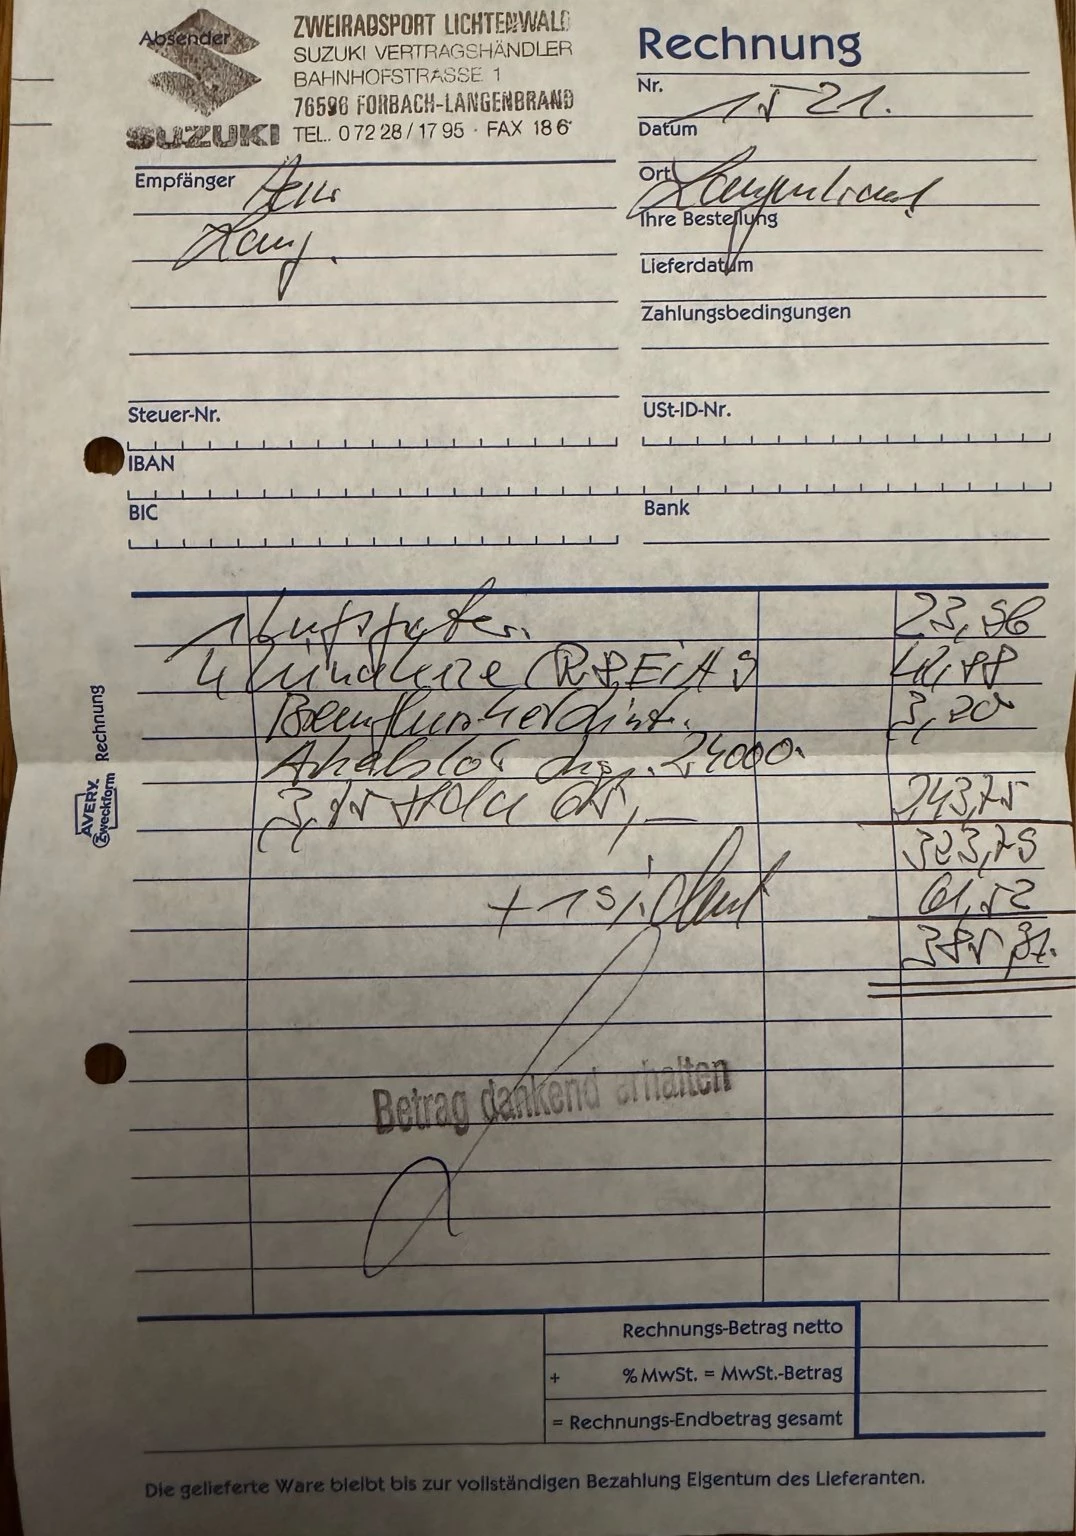 Absender
ZWEIRADSPORT LICHTENWALD
SUZUKI VERTRAGSHÄNDLER
BAHNHOFSTRASSE 1
76596 FORBACH-LANGENBRAND
SUZUKI TEL. 0 72 28 / 17 95 · FAX 18 6
Rechnung
Nr.
Datum
Empfänger Herr
Lang.
Ort Langenbrand
Ihre Bestellung
Lieferdatum
Zahlungsbedingungen
Steuer-Nr.
USt-ID-Nr.
IBAN
BIC
Bank
1 Luftfilter. 23,96
4 (R8EIA9
3,20
24000.
3,75 243,75
323,79
+ 19% 61,52
385,31.
Betrag dankend erhalten
AVERY Zweckform Rechnung
Rechnungs-Betrag netto
+ % MwSt. = MwSt.-Betrag
= Rechnungs-Endbetrag gesamt
Die gelieferte Ware bleibt bis zur vollständigen Bezahlung Eigentum des Lieferanten.